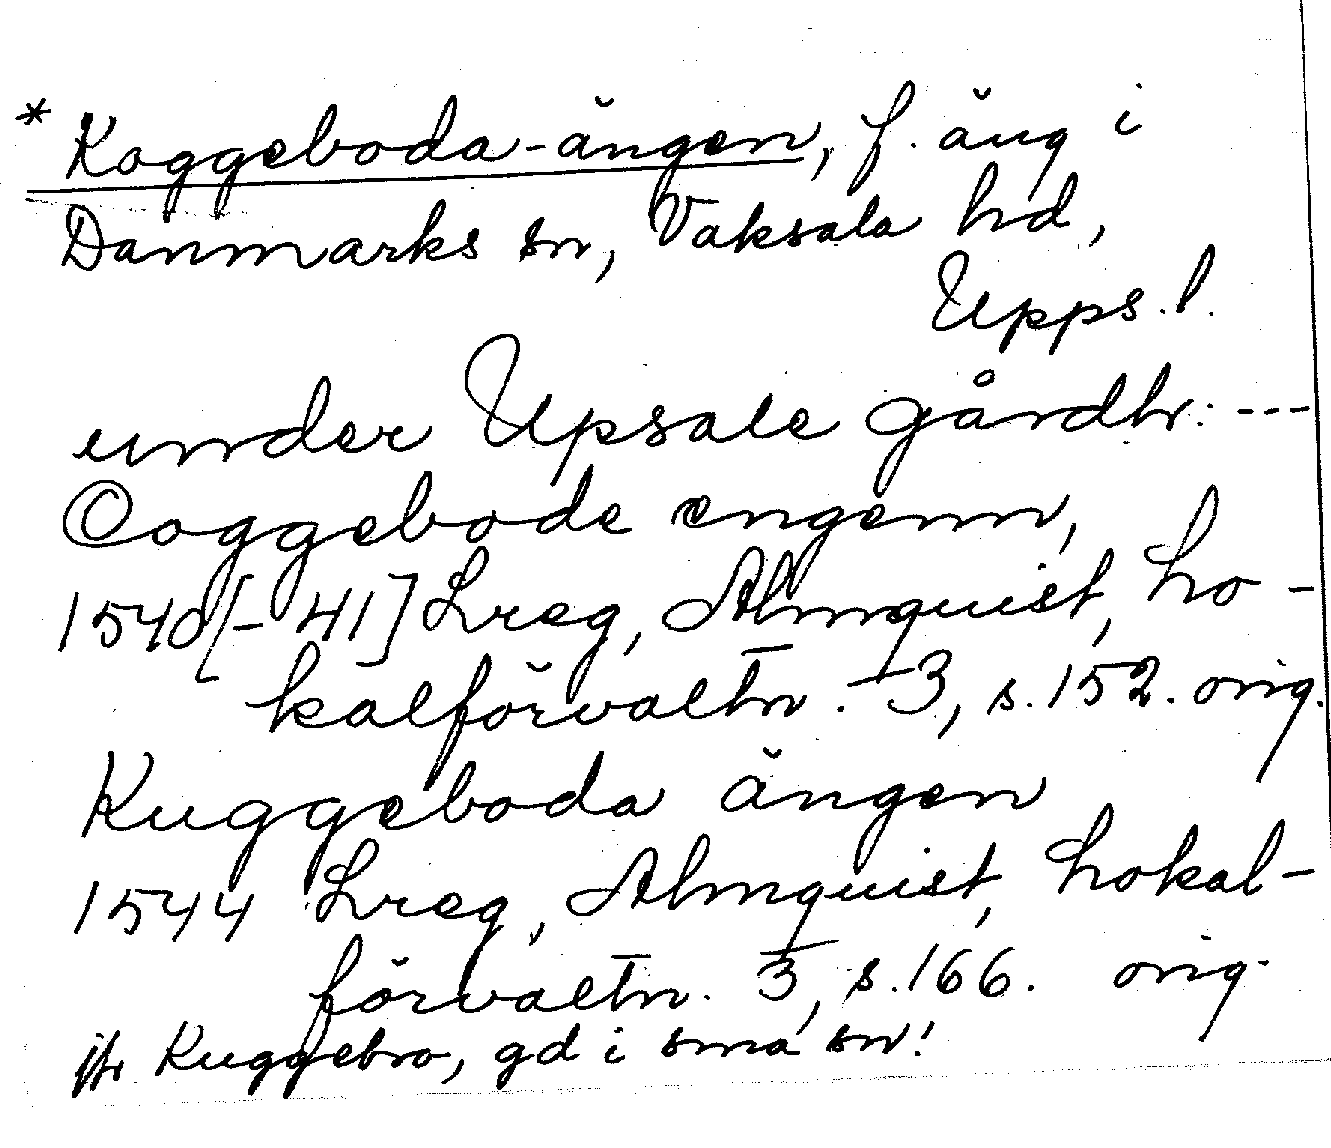 * Koggeboda-ängen, f. äng i
Danmarks sn, Vaksala hd,
Upps. l.
under Upsale gårdh: ---
Coggebode engenn,
1540[-41] Lreg, Almquist, Lo-
kalförvaltn. 3, s. 152. orig.
Kuggeboda ängen
1544 Lreg, Almquist, Lokal-
förvaltn. 3, s. 166. orig.
jfr Kuggebro, gd i sma sn!